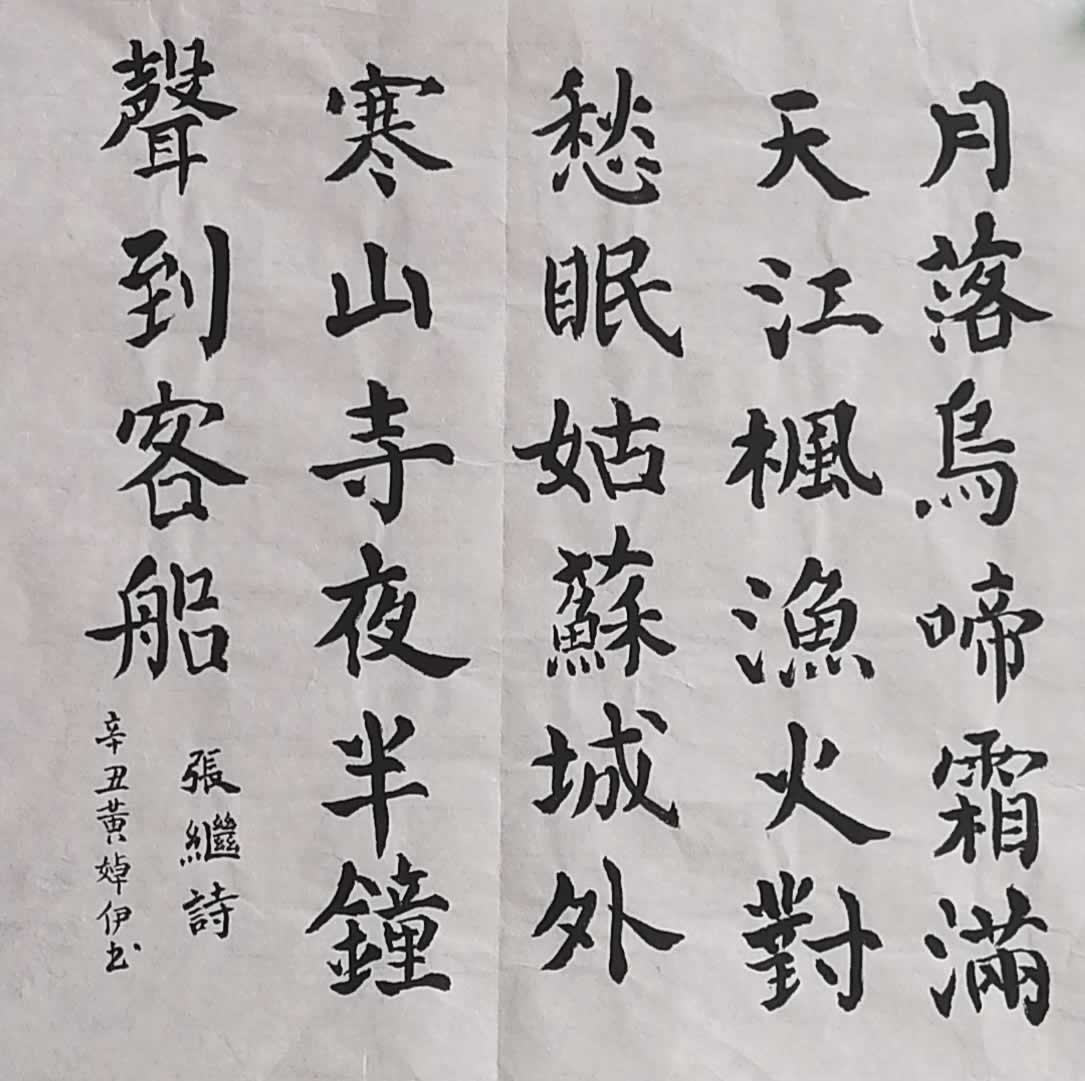 月落烏啼霜滿
天江楓漁火對
愁眠姑蘇城外
寒山寺夜半鐘
聲到客船
張繼詩
辛丑黃婥伊书